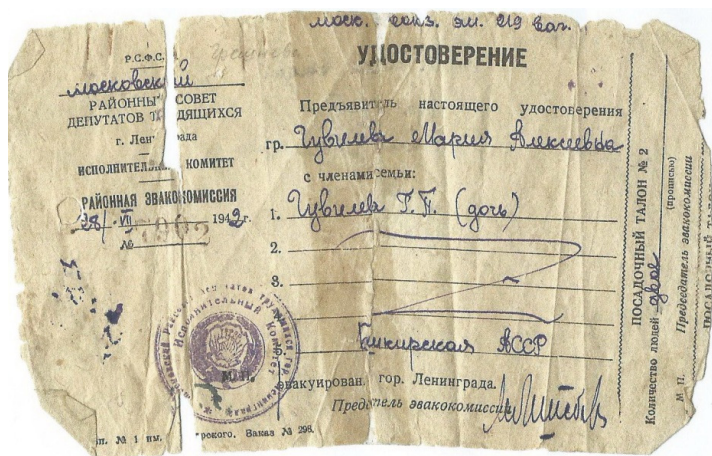 моск. вокз. эш. 219 ваг.
УДОСТОВЕРЕНИЕ
Р.С.Ф.С.
московский
РАЙОННЫ СОВЕТ
ДЕПУТАТОВ Т ДЯЩИХСЯ
г. Лен града
ИСПОЛНИТЕЛЬН КОМИТЕТ
РАЙОННАЯ ЭВАКОКОМИССИЯ
28/VI 1942г.
№ 7902
Предъявит ль настоящего удостоверения
гр. Мария Алексеевна
с членами семьи:
1. Г.П. (дочь)
2.
3.
Башкирская АССР
М.П.
эвакуирован гор. Ленинграда.
Предс тель эвакокомиссии
п. № 1 им. рского. Заказ № 298.
ПОСАДОЧНЫЙ ТАЛОН № 2
Количество людей двое
(прописью)
М П. Председатель эвакокомиссии
ПОСАДОЧНЫЙ ТАЛОН